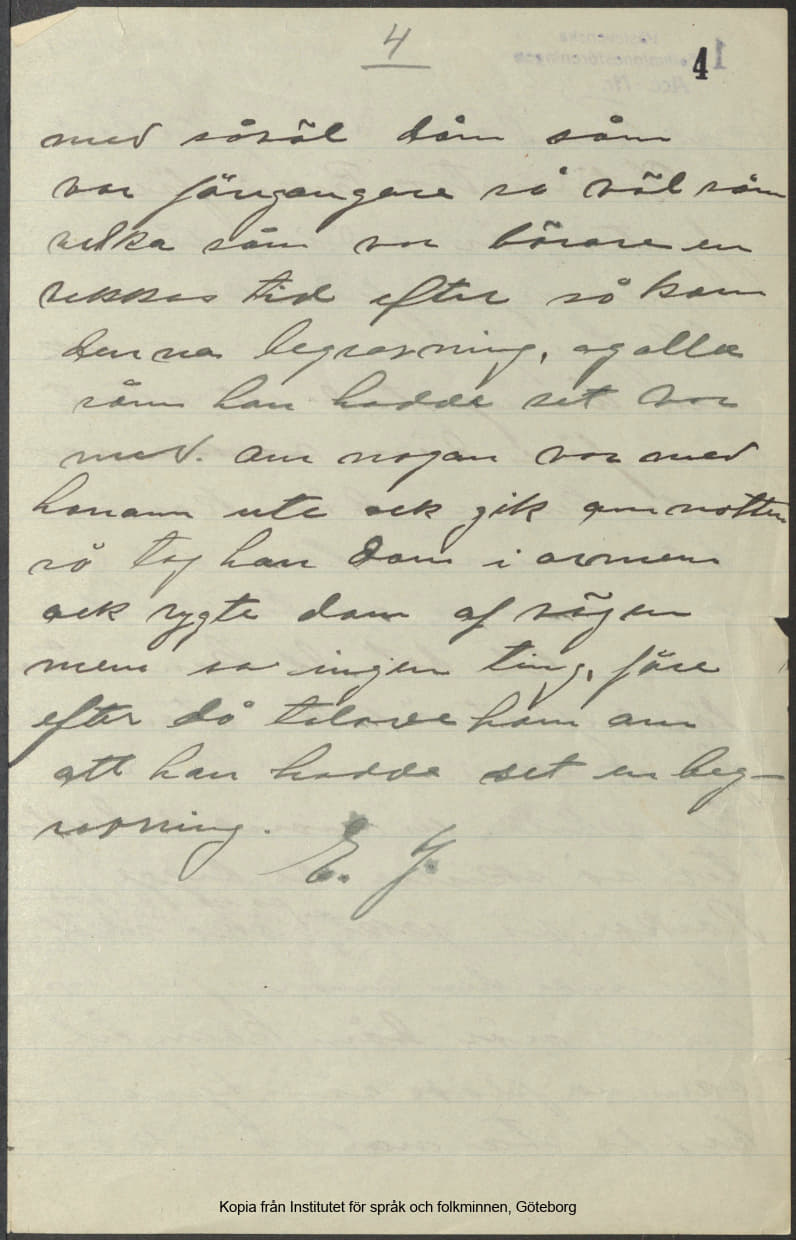 4
41
med såväl dåm såm
var förgangare så väl såm
velka såm var bårare en
vekkas tid efter så kam
denna begravning, og alla
såm han hadde set var
med. am nogan var med
honam ute ock gik am natten
så tog han dam i armen
ock rygte dam af vägen
men sa ingen ting, före
efter då talade ham am
att han hadde set en beg-
ravning.
E. J.
Kopia från Institutet för språk och folkminnen, Göteborg